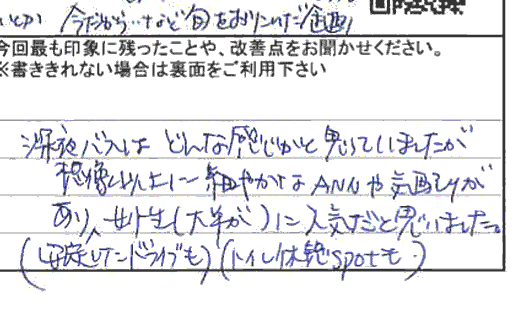 今だから…など旬をおりこんだ企画
今回最も印象に残ったことや、改善点をお聞かせください。
※書ききれない場合は裏面をご利用下さい
深夜バスは どんな感じかと思っていましたが
想像以上に細やかなANNや気配りが
あり、女子生(大半が)に人気だと思いました。
(安定したンドライブも)(トイレ休憩spotも)